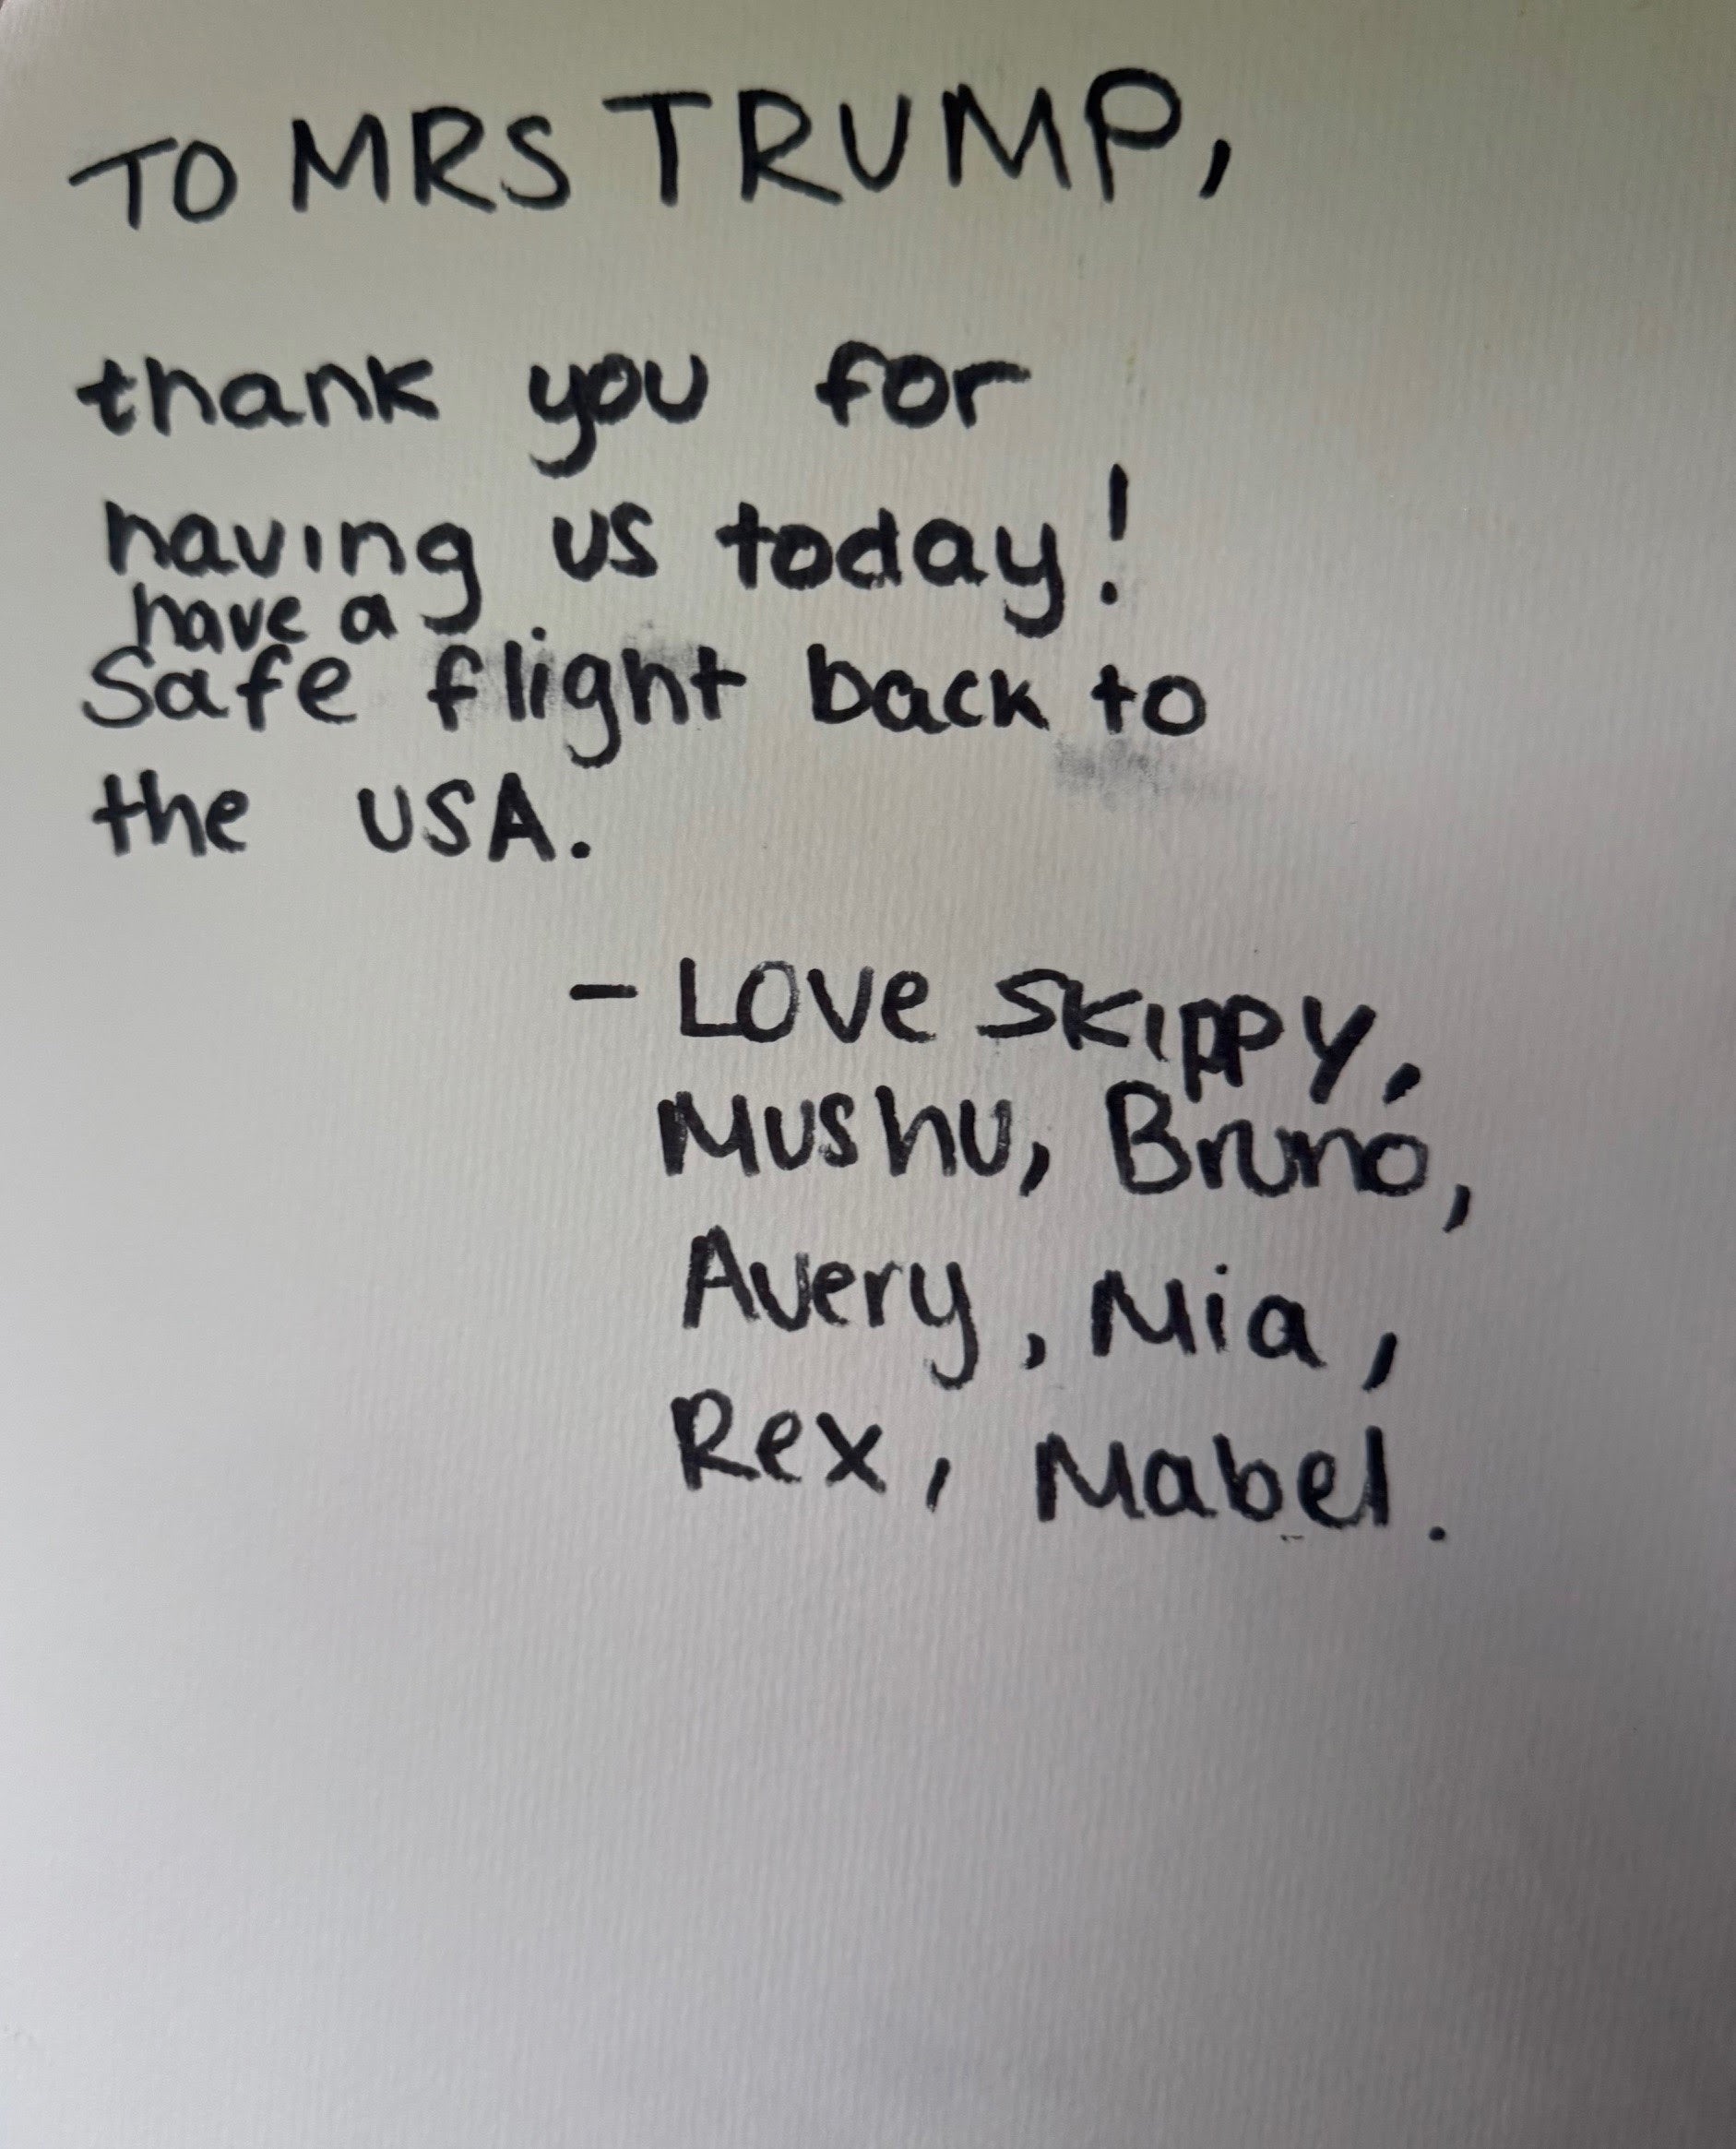 TO MRS TRUMP,
thank you for
having us today!
have a
Safe flight back to
the USA.
- Love SKIPPY,
Mushu, Bruno,
Avery, Mia,
Rex, Mabel.